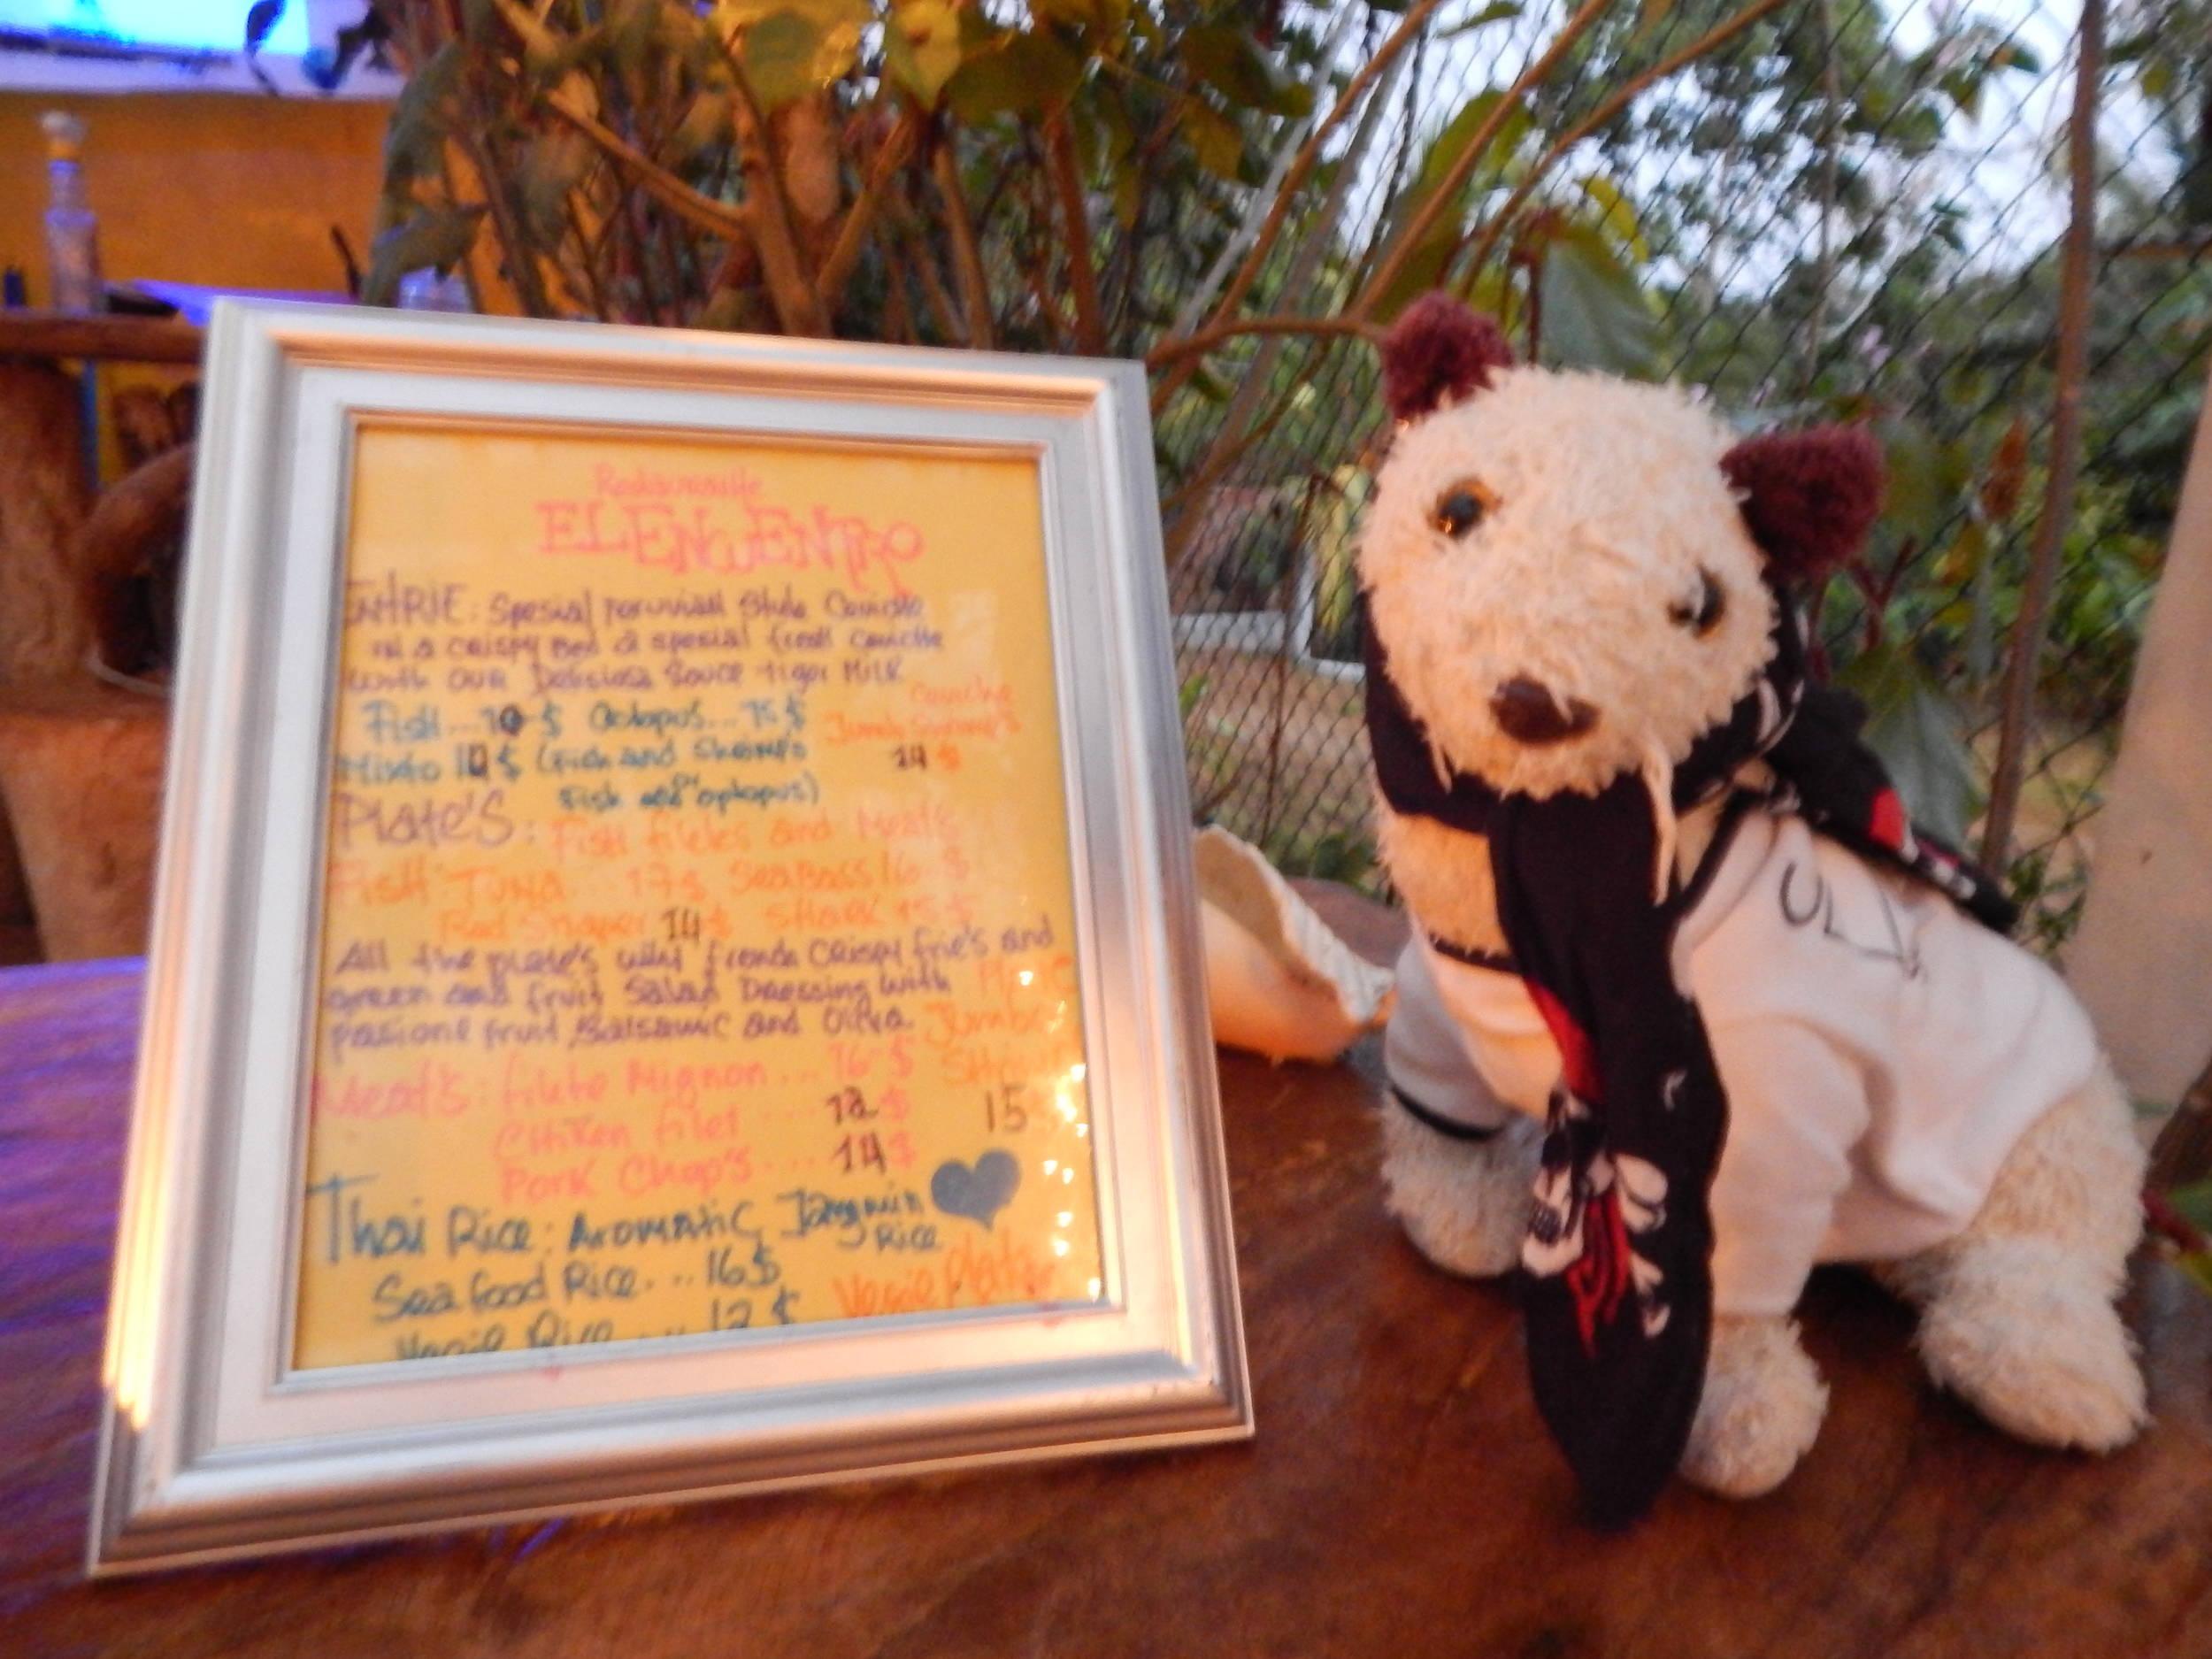 Restaurante
EL ENCUENTRO
ENTRIE: Spesial peruvian Style Ceviche
in a crispy Bed a spesial fresh ceviche
with our Delisiosa Souce tiger MILK
Fish...10 $ Octopus... 15 $
Ceviche
Jumbo Shrimp's
14 $
Mixto 10 $ (Fish and Shrimp's
Fish and octopus)
Plate's: Fish filetes and Meats
Fish Tuna ... 17 $ SeaBass 16 $
Red Snaper 14 $ SHARK 15 $
All the plate's with Crispy frie's and
green and fruit Salad Dressing with
pasione fruit, Balsamic and Oliva.
Jumbo
15 $
Meat's: filete Mignon... 16 $
CHiKen filet .... 12 $
Pork Chop's .... 14 $
Thai Rice: Aromatic Jazmin
Rice
Sea food Rice... 16 $
Vegie Rice ..... 12 $
Vegie Plate